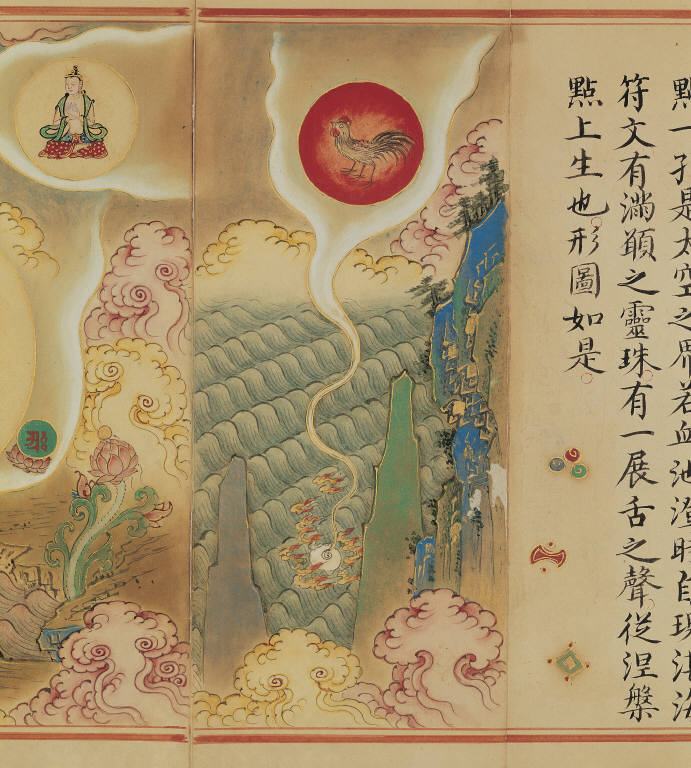 點一孔是太空之界若血池澄時自現
符文有滿願之靈珠有一展舌之聲從涅槃
點上生也形圖如是